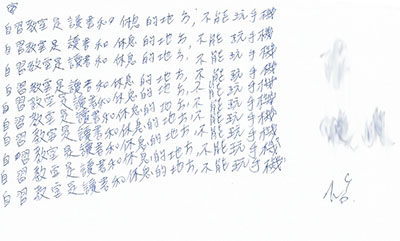 自習教室是讀書和休息的地方,不能玩手機
自習教室是讀書和休息的地方,不能玩手機
自習教室是讀書和休息的地方,不能玩手機
自習教室是讀書和休息的地方,不能玩手機
自習教室是讀書和休息的地方,不能玩手機
自習教室是讀書和休息的地方,不能玩手機
自習教室是讀書和休息的地方,不能玩手機
自習教室是讀書和休息的地方,不能玩手機
自習教室是讀書和休息的地方,不能玩手機
自習教室是讀書和休息的地方,不能玩手機